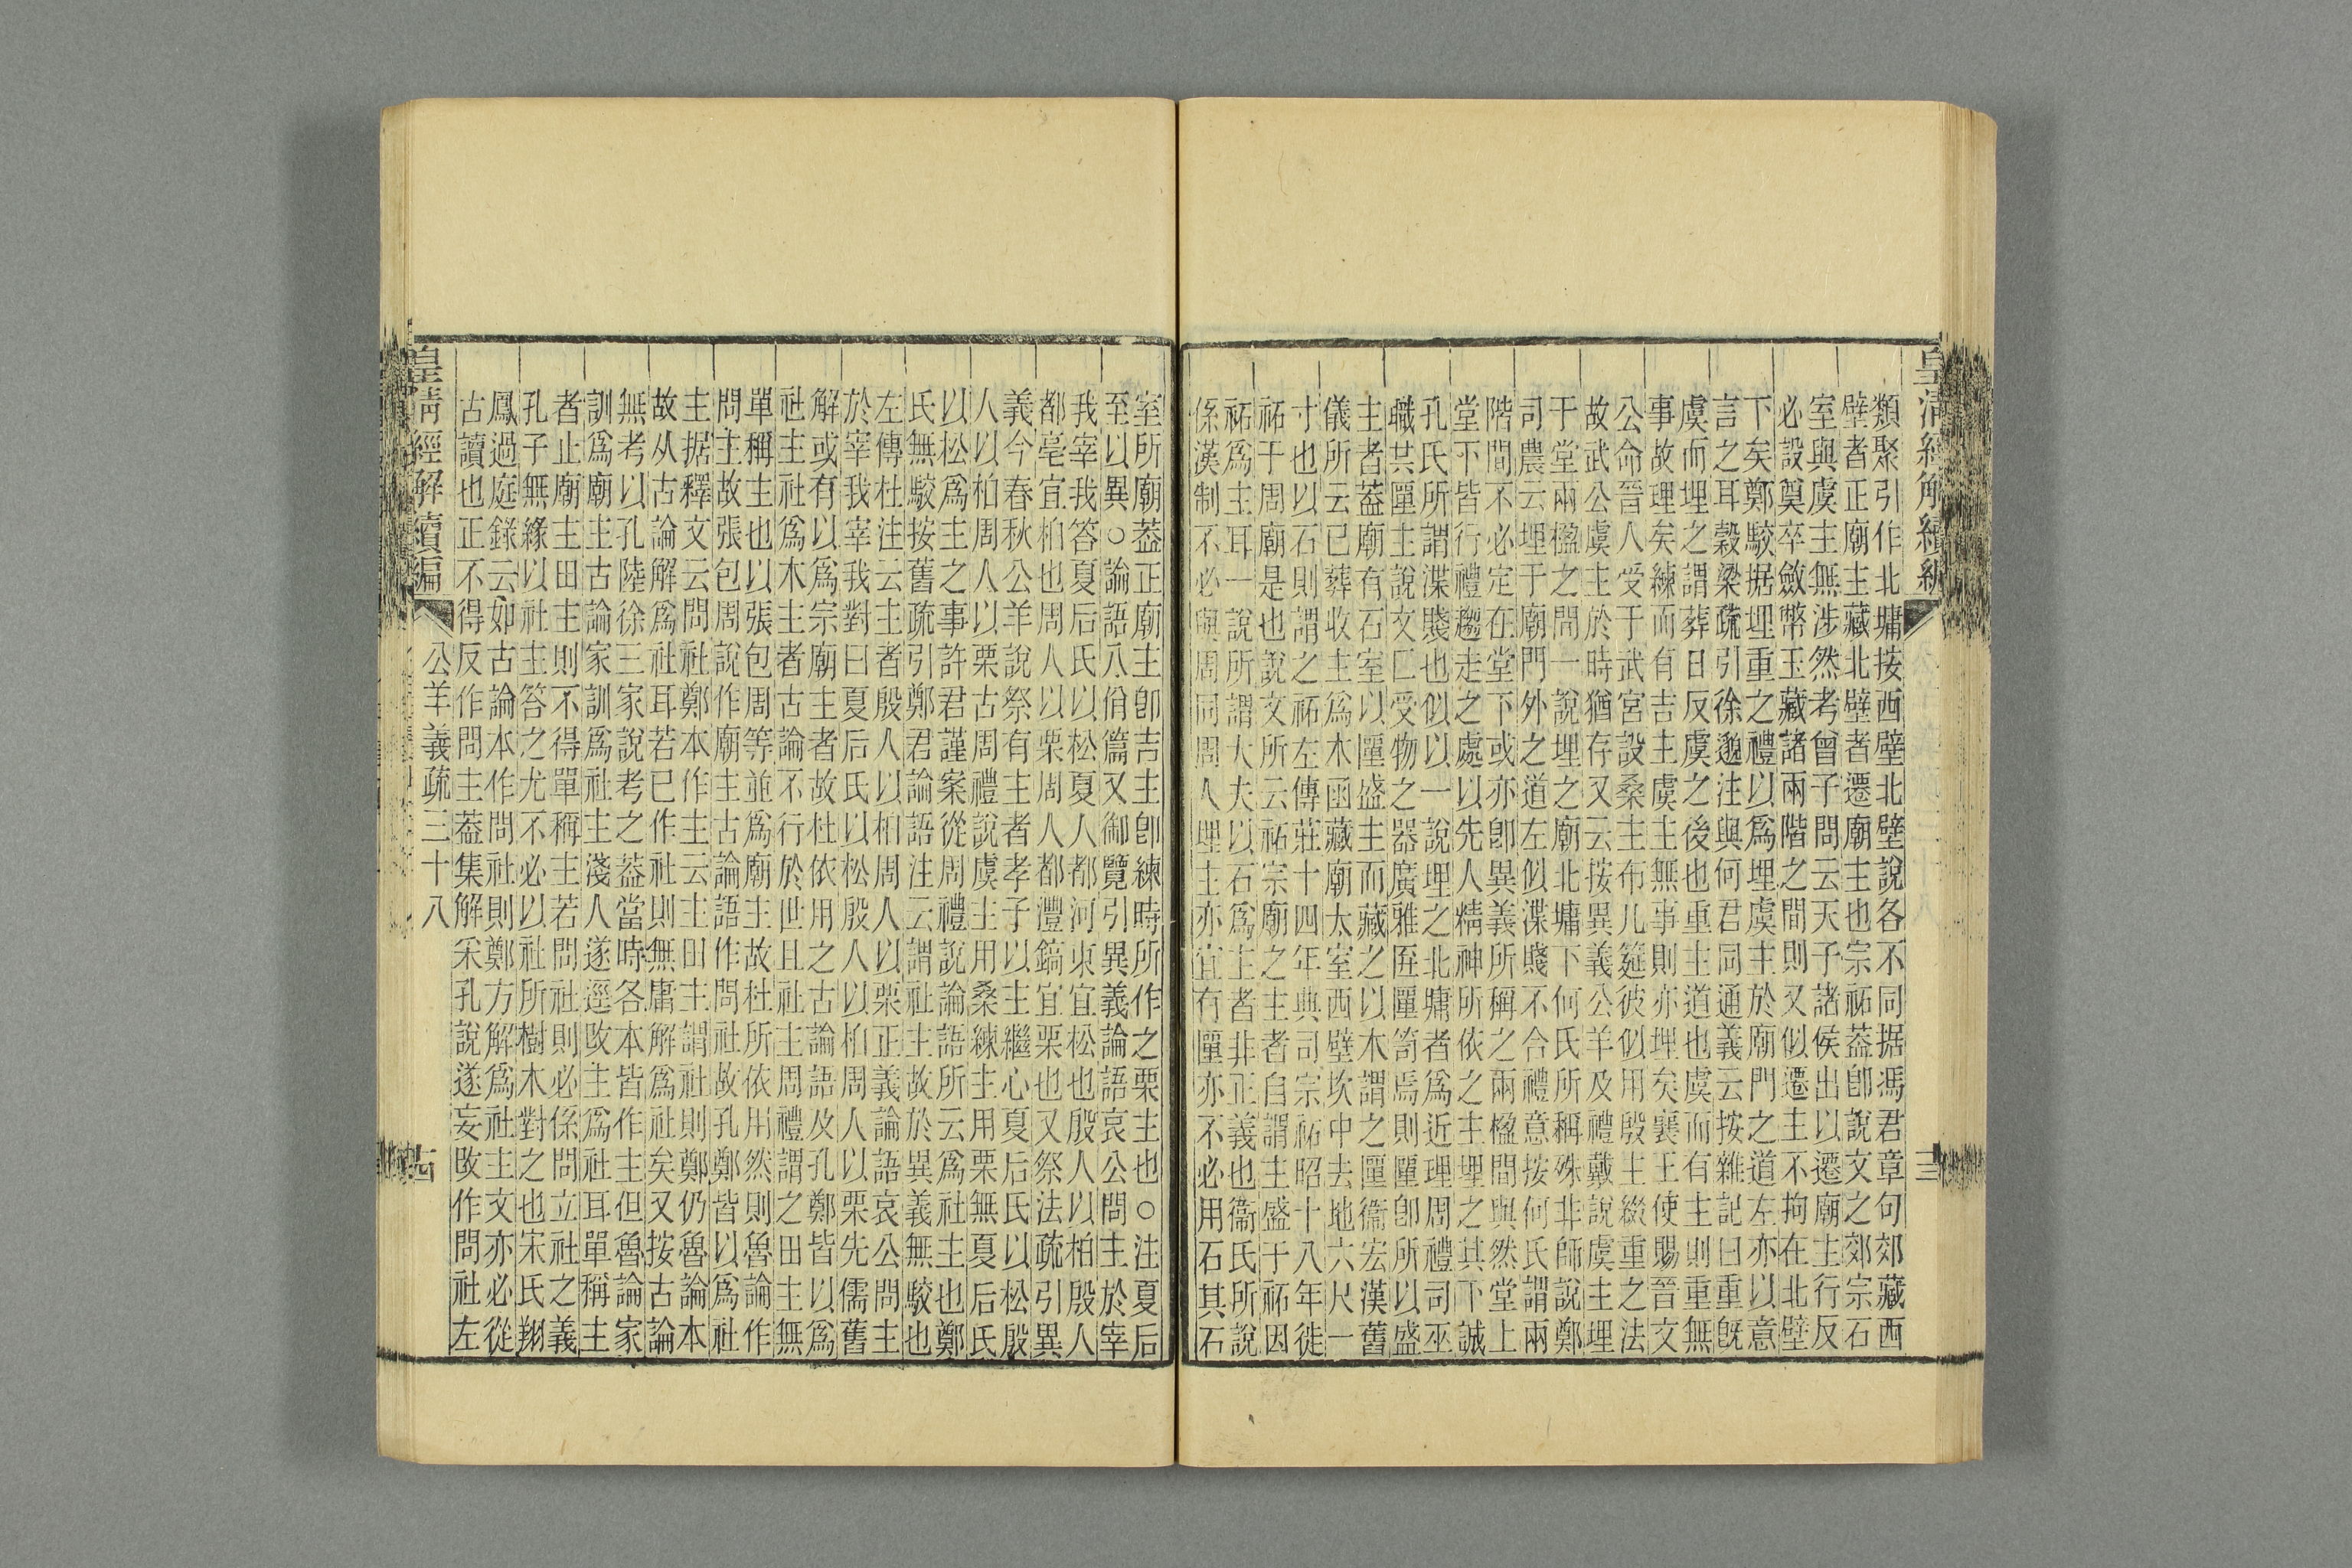 皇清經解續編
類聚引作北墉按西壁北壁說各不同据馮君章句郊藏西
壁者正廟主藏北壁者遷廟主也宗祏葢卽說文之郊宗石
室與虞主無涉然考曾子問云天子諸侯出以遷廟主行反
必設奠卒斂幣玉藏諸兩階之間則又似遷主不拘在北壁
下矣鄭駮据埋重之禮以爲埋虞主於廟門之道左亦以意
言之耳穀梁疏引徐邈注與何君同通義云按雜記曰重旣
虞而埋之謂葬日反虞之後也重主道也虞而有主則重無
事故理矣練而有吉主虞主無事則亦埋矣襄王使賜晉文
公命晉人受于武宮設桑主布几筵彼似用殷主綴重之法
故武公虞主於時猶存又云按異義公羊及禮戴說虞主理
于堂兩楹之間一說埋之廟北墉下何氏所稱殊非師說鄭
司農云埋于廟門外之道左似渫賤不合禮意按何氏謂兩
階間不必定在堂下或亦卽異義所稱之兩楹間與然堂上
堂下皆行禮趨走之處以先人精神所依之主埋之其下誠
孔氏所謂渫賤也似以一說埋之北墉者爲近理周禮司巫
職其匰主說文匚受物之器廣雅匰笥焉則匰卽所以盛
主者葢廟有石室以匰盛主而藏之以木謂之匰衞宏漢舊
儀所云已葬收主爲木函藏廟太室西壁坎中去地六尺一
寸也以石則謂之祏左傳莊十四年典司宗祏昭十八年徙
祏于周廟是也說文所云祏宗廟之主者自謂主盛于祏因
祏爲主耳一說所謂大夫以石爲主者非正義也衞氏所說
係漢制不必與周同周人埋主亦宜有匰亦不必用石其石
室所廟葢正廟主卽吉主卽練時所作之栗主也○注夏后
至以異○論語八佾篇又御覽引異義論語哀公問主於宰
我宰我答夏后氏以松夏人都河東宜松也殷人以柏殷人
都亳宜柏也周人以栗周人都灃鎬宜栗也又祭法疏引異
義今春秋公羊說祭有主者孝子以主繼心夏后氏以松殷
人以柏周人以栗古周禮說虞主用桑練主用栗無夏后氏
以松爲主之事許君謹案從周禮說論語所云爲社主也鄭
氏無駮按舊疏引鄭君論語注云謂社主故於異義無駮也
左傳杜注云主者殷人以柏周人以栗正義論語哀公問主
於宰我宰我對曰夏后氏以松殷人以柏周人以栗先儒舊
解或有以爲宗廟主者故杜依用之古論語及孔鄭皆以爲
社主社爲木主者古論不行於世且社主周禮謂之田主無
單稱主也以張包周等並爲廟主故杜所依用然則魯論作
問主故張包周說作廟主古論語作問社故孔鄭皆以爲社
主据釋文云問社鄭本作主云主田主謂社則鄭仍魯論本
故从古論解爲社耳若已作社則無庸解爲社矣又按古論
無考以孔陸徐三家說考之葢當時各本皆作主但魯論家
訓爲廟主古論家訓爲社主淺人遂逕改主爲社耳單稱主
者止廟主田主則不得單稱主若問社則必係問立社之義
孔子無緣以社主答之尤不必以社所樹木對之也宋氏翔
鳳過庭錄云如古論本作問社則鄭方解爲社主文亦必從
古讀也正不得反作問主葢集解采孔說遂妄改作問社左
皇清經解續編
公羊義疏三十八